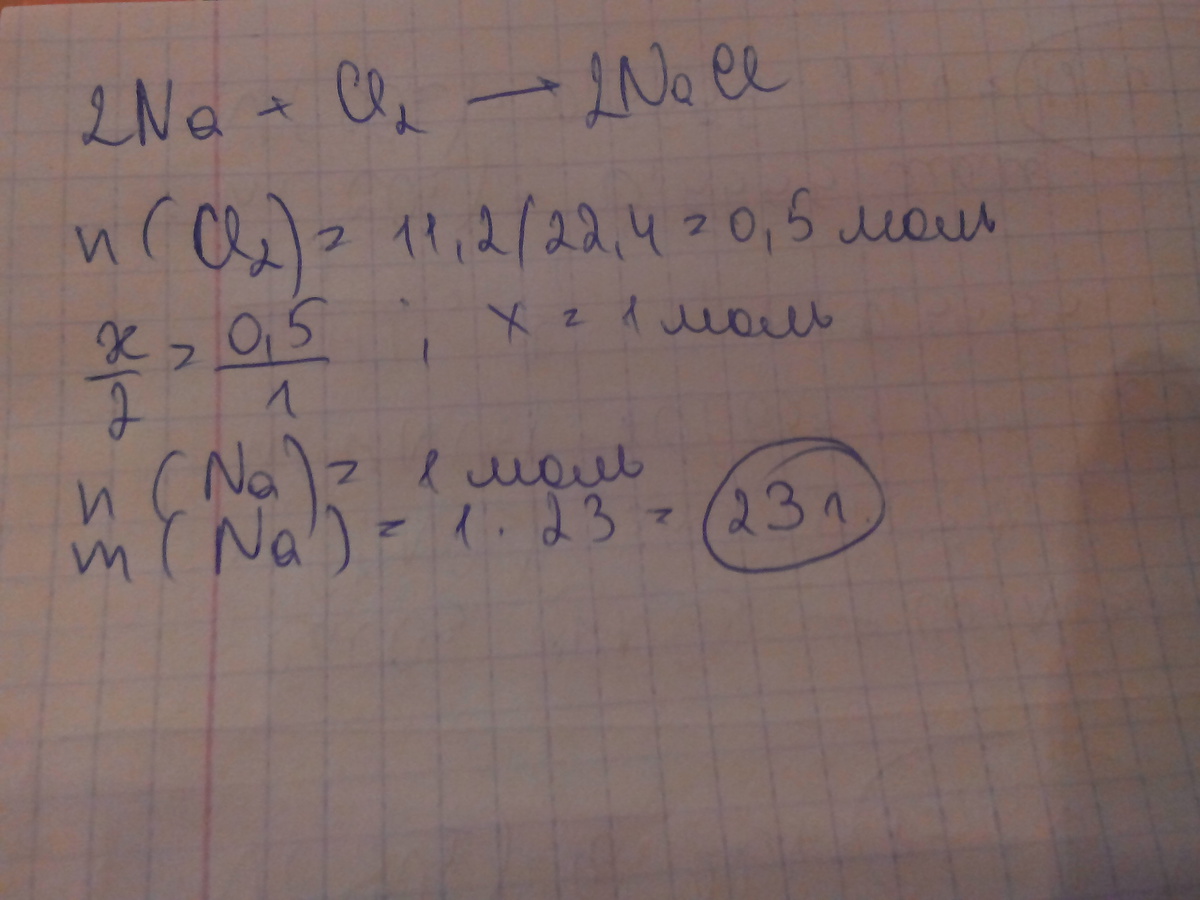 2Na + Cl₂ → 2NaCl
n(Cl₂) = 11,2/22,4 = 0,5 моль
x/2 = 0,5/1 ; x = 1 моль
n(Na) = 1 моль
m(Na) = 1 · 23 = 23 г.